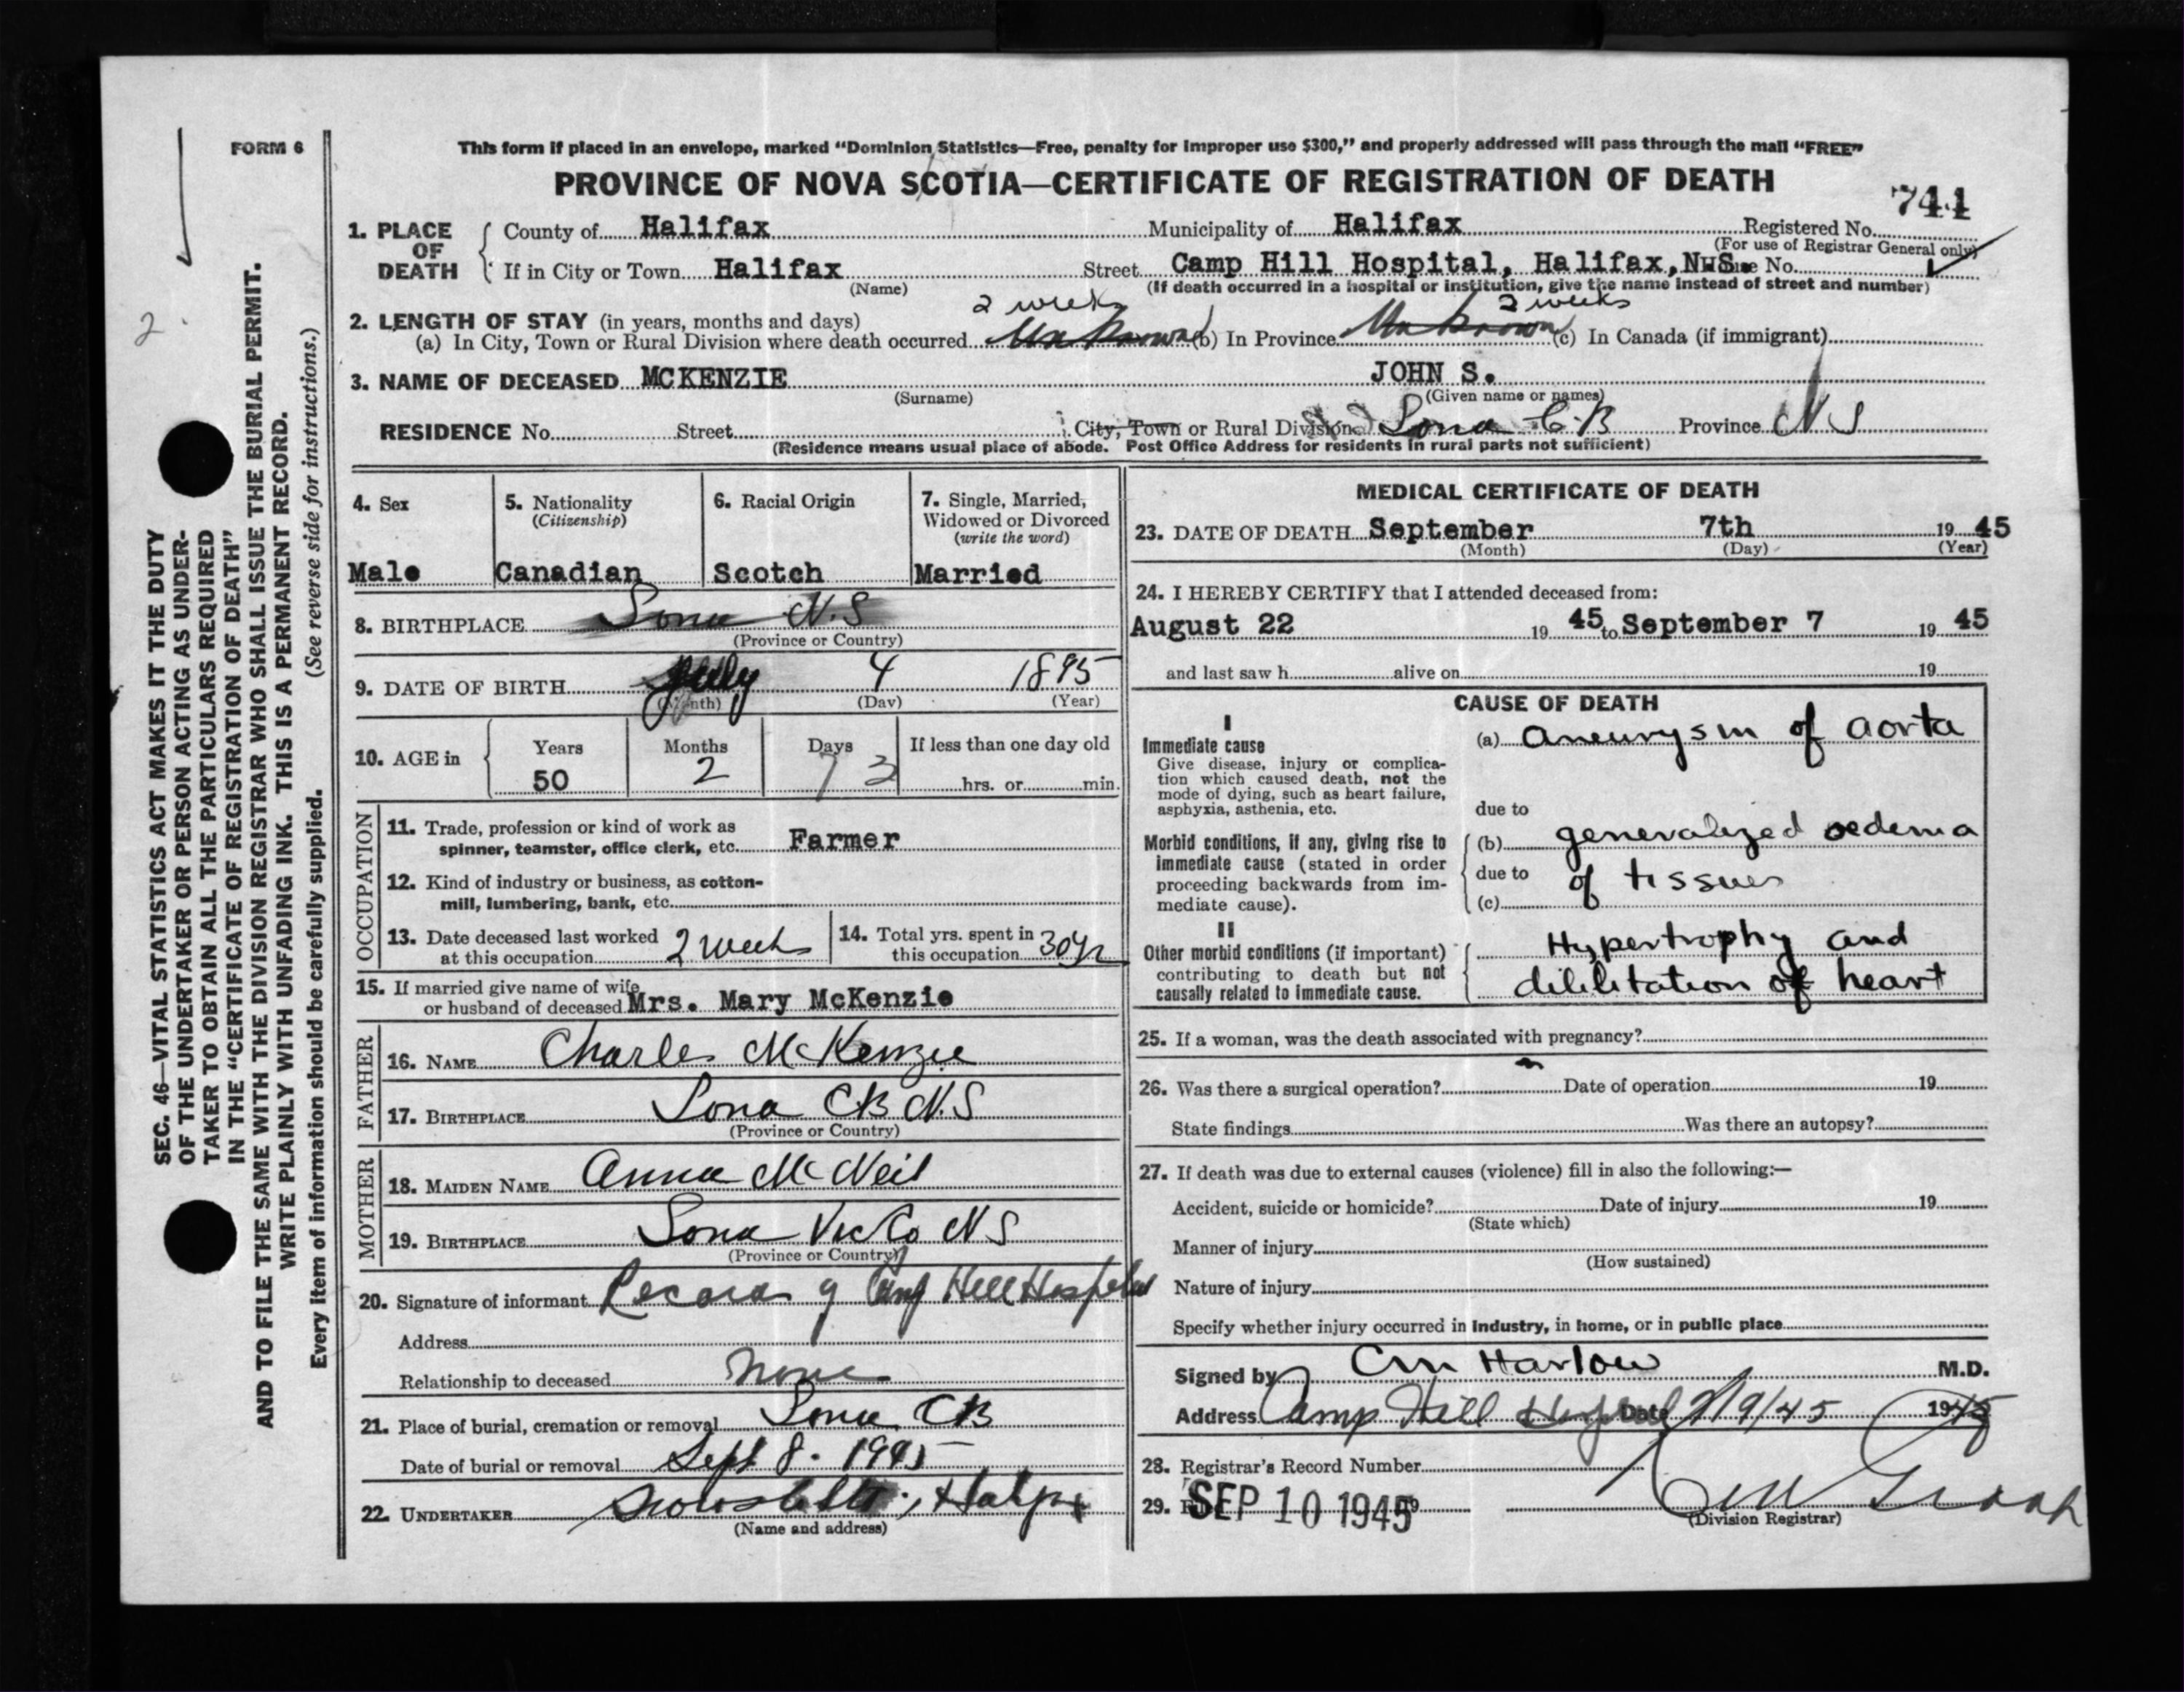 FORM 6
This form if placed in an envelope, marked “Dominion Statistics—Free, penalty for improper use $300,” and properly addressed will pass through the mail “FREE”
PROVINCE OF NOVA SCOTIA—CERTIFICATE OF REGISTRATION OF DEATH
741
1. PLACE OF DEATH
County of Halifax Municipality of Halifax Registered No.
(For use of Registrar General only)
If in City or Town Halifax Street Camp Hill Hospital, Halifax, N.S. House No.
(Name) (If death occurred in a hospital or institution, give the name instead of street and number)
2 weeks 2 weeks
2. LENGTH OF STAY (in years, months and days)
(a) In City, Town or Rural Division where death occurred Unknown (b) In Province Unknown (c) In Canada (if immigrant)
3. NAME OF DECEASED MCKENZIE JOHN S.
(Surname) (Given name or names)
RESIDENCE No. Street City, Town or Rural Division Iona C.B Province N S
(Residence means usual place of abode. Post Office Address for residents in rural parts not sufficient)
4. Sex
Male
5. Nationality
(Citizenship)
Canadian
6. Racial Origin
Scotch
7. Single, Married,
Widowed or Divorced
(write the word)
Married
8. BIRTHPLACE Iona N.S
(Province or Country)
9. DATE OF BIRTH July 4 1895
(Month) (Day) (Year)
10. AGE in
Years Months Days If less than one day old
50 2 3 hrs. or min.
OCCUPATION
11. Trade, profession or kind of work as
spinner, teamster, office clerk, etc. Farmer
12. Kind of industry or business, as cotton-
mill, lumbering, bank, etc.
13. Date deceased last worked
at this occupation 2 weeks
14. Total yrs. spent in
this occupation 30 yr
15. If married give name of wife
or husband of deceased Mrs. Mary McKenzie
FATHER
16. NAME Charles McKenzie
17. BIRTHPLACE Iona CB N.S
(Province or Country)
MOTHER
18. MAIDEN NAME Anna McNeil
19. BIRTHPLACE Iona Vic Co N S
(Province or Country)
20. Signature of informant Records of Camp Hill Hospital
Address
Relationship to deceased none
21. Place of burial, cremation or removal Iona CB
Date of burial or removal Sept 8. 1945
22. UNDERTAKER Halfx
(Name and address)
MEDICAL CERTIFICATE OF DEATH
23. DATE OF DEATH September 7th 19 45
(Month) (Day) (Year)
24. I HEREBY CERTIFY that I attended deceased from:
August 22 19 45 to September 7 19 45
and last saw h alive on 19
CAUSE OF DEATH
I
Immediate cause
Give disease, injury or complica-
tion which caused death, not the
mode of dying, such as heart failure,
asphyxia, asthenia, etc.
(a) Aneurysm of aorta
due to
Morbid conditions, if any, giving rise to
immediate cause (stated in order
proceeding backwards from im-
mediate cause).
(b) generalized oedema
due to of tissues
(c)
II
Other morbid conditions (if important)
contributing to death but not
causally related to immediate cause.
Hypertrophy and
dililitation of heart
25. If a woman, was the death associated with pregnancy?
26. Was there a surgical operation? Date of operation 19
State findings Was there an autopsy?
27. If death was due to external causes (violence) fill in also the following:—
Accident, suicide or homicide? Date of injury 19
(State which)
Manner of injury
(How sustained)
Nature of injury
Specify whether injury occurred in industry, in home, or in public place
Signed by C M Harlow M.D.
Address Camp Hill Hospital Date 7/9/45 1945
28. Registrar's Record Number
29. SEP 10 1945
(Division Registrar)
SEC. 46—VITAL STATISTICS ACT MAKES IT THE DUTY
OF THE UNDERTAKER OR PERSON ACTING AS UNDER-
TAKER TO OBTAIN ALL THE PARTICULARS REQUIRED
IN THE “CERTIFICATE OF REGISTRATION OF DEATH”
AND TO FILE THE SAME WITH THE DIVISION REGISTRAR WHO SHALL ISSUE THE BURIAL PERMIT.
WRITE PLAINLY WITH UNFADING INK. THIS IS A PERMANENT RECORD.
Every item of information should be carefully supplied. (See reverse side for instructions.)
2